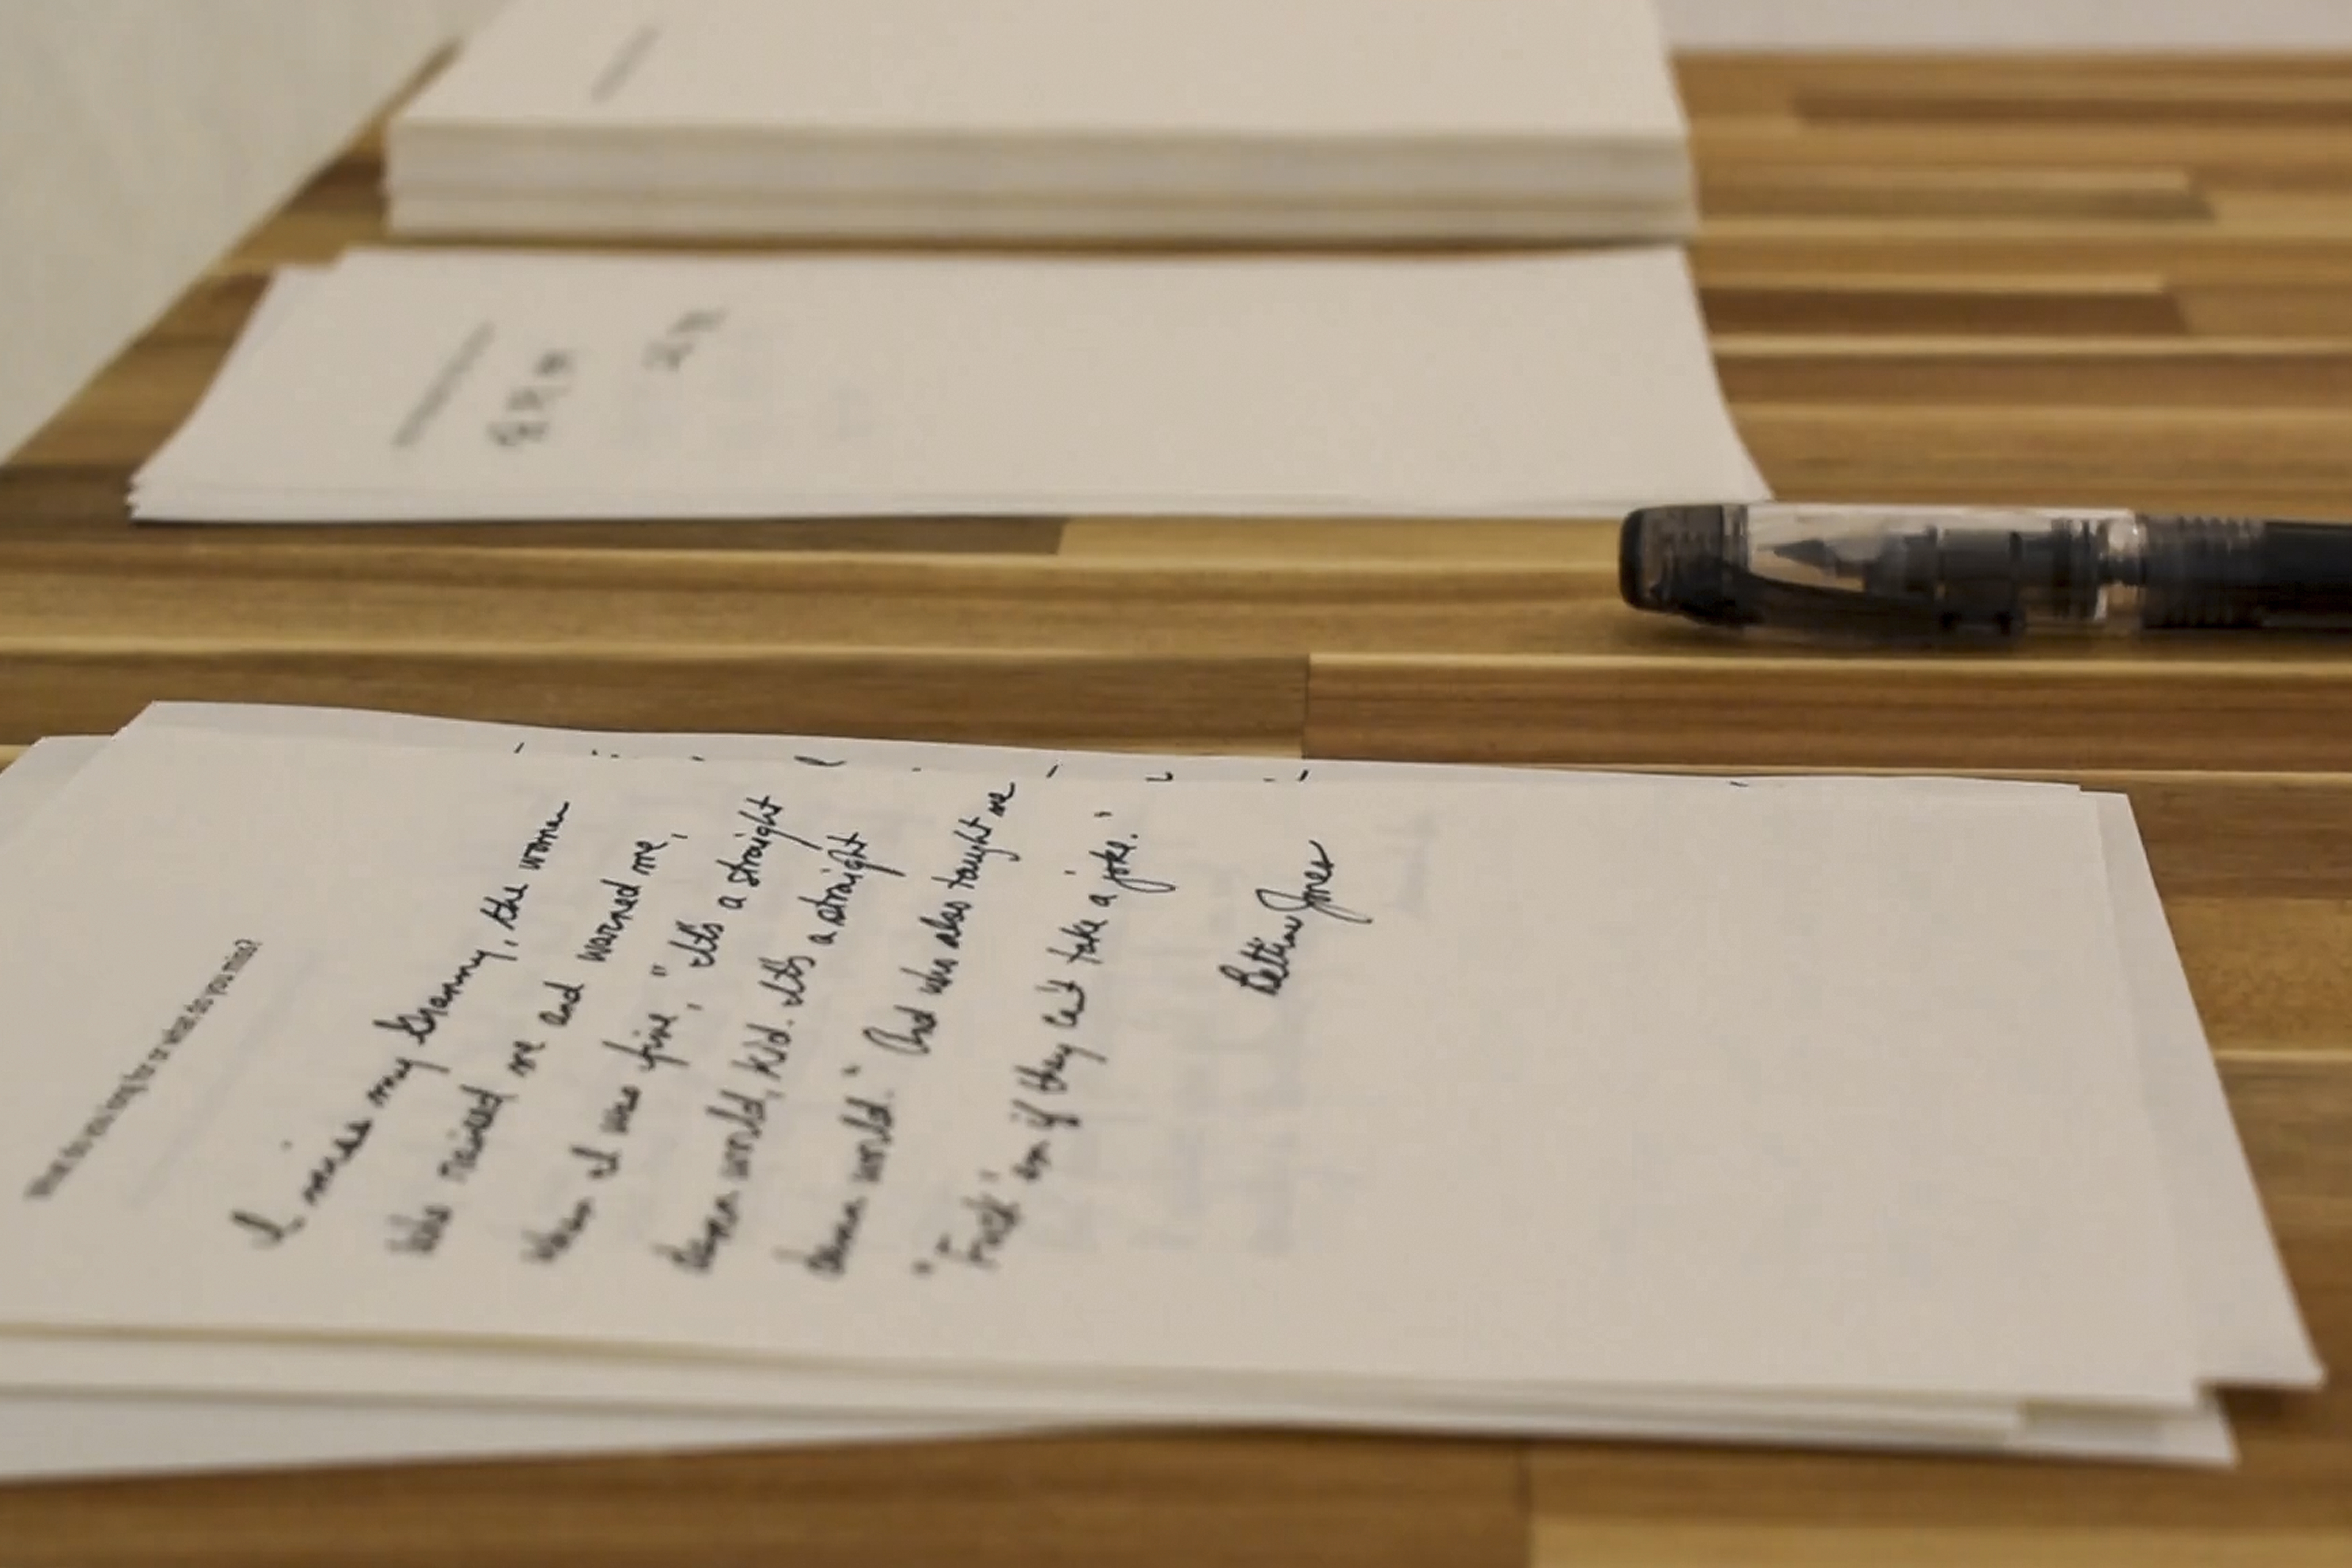 What do you long for or what do you miss?
I miss my Granny, the woman
who raised me and warned me,
when I was five, "It's a straight
damn world, kid. It's a straight
damn world." And who also taught me
"Fuck 'em if they can't take a joke."
Bettina Jones